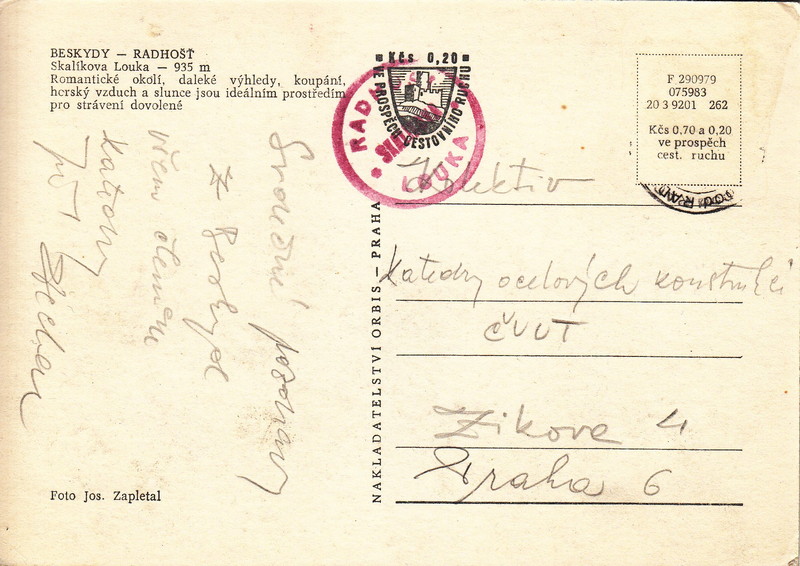 BESKYDY — RADHOŠŤ
Skalíkova Louka — 935 m
Romantické okolí, daleké výhledy, koupání,
horský vzduch a slunce jsou ideálním prostředím
pro strávení dovolené
Kčs 0,20
VE PROSPĚCH CESTOVNÍHO RUCHU
LOUKA
F 290979
075983
20 3 9201 262
Kčs 0,70 a 0,20
ve prospěch
cest. ruchu
Srdečné pozdravy
z Beskyd
všem členům
katedry
Kolektiv
Katedry ocelových konstrukcí
ČVUT
Zikova 4
Praha 6
NAKLADATELSTVÍ ORBIS — PRAHA
Foto Jos. Zapletal